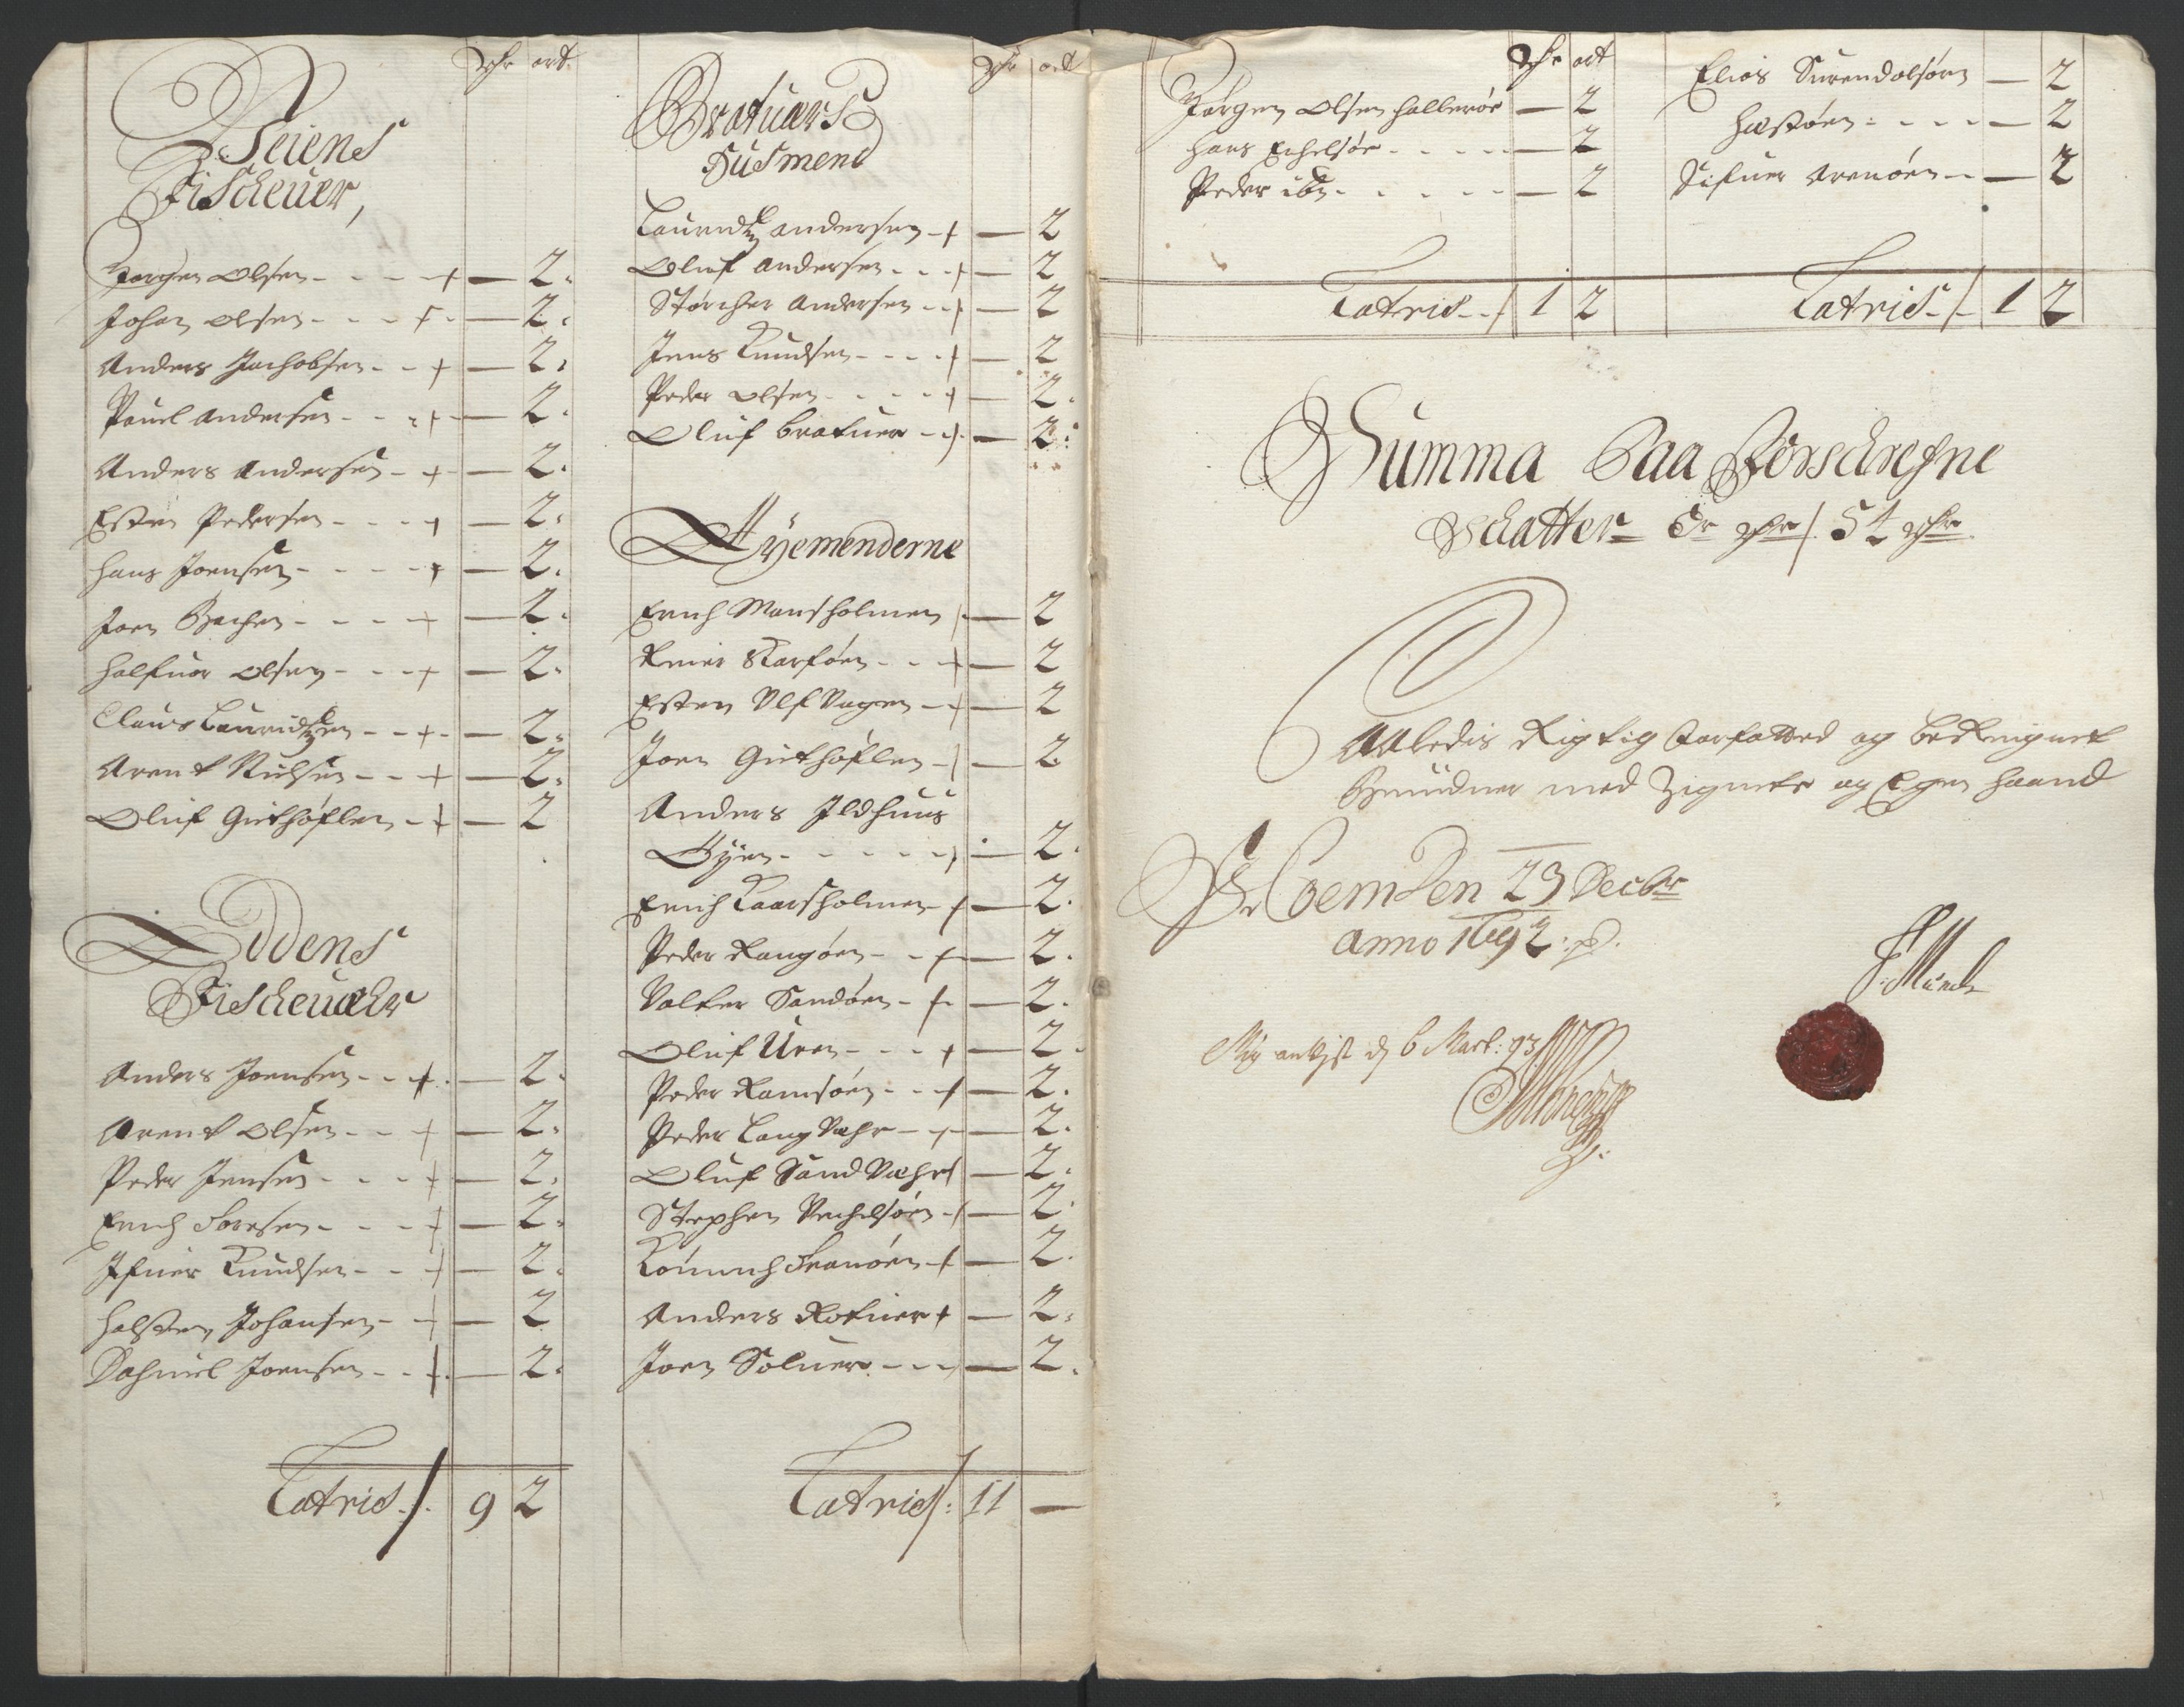 Rdr ort
Veiens
Fischeuer,
Jørgen Olsen - - - + — 2
Johan Olsen - - - + — 2
Anders Jachobsen - - + — 2
Pouel Andersen - - - + — 2
Anders Andersen - + — 2
Esten Pedersen - - - + — 2
Hans Joensen - - - - + — 2
Joen Bachen - - - - + — 2
Halfuor Olsen - - - + — 2
Claus Lauridtzen - - + — 2
Arent Nielsen - - - + — 2
Oluf Giethøflen - + — 2
Eddens
Fischeuæhr
Anders Joensen - - + — 2
Arent Olsen - - + — 2
Peder Jensen - - - + — 2
Erich Joensen - - - + — 2
Ifuer Knudsen - - + — 2
Halsten Johansen - + — 2
Daniel Joensen - - + — 2
Latris / 9 2
Rdr ort
Bratuærs
Husmend
Lauridtz Andersen - + — 2
Oluf Andersen - - - + — 2
Størcher Andersen - - + — 2
Jens Knudsen - - - + — 2
Peder Olsen - - - - + — 2
Oluf Bratuer - + — 2
Øyemenderne
Erich Mansholmen / — 2
Reier Skarføen - - + — 2
Esten Ulf Vogen - + — 2
Joen Giethøflen - + — 2
Anders Ildhuus
Øyen - - - - - + — 2
Erich Kaarsholmen + — 2
Peder Rangøen - - + — 2
Valter Sandøen - + — 2
Oluf Uren - - - + — 2
Peder Ramsøen - - + — 2
Peder Lang Væhr - + — 2
Oluf Sand Væhr + — 2
Stephen Vechelsøen - + — 2
Anders Rotuer + — 2
Joen Soluer - - - + — 2
Latris / 11 —
Rdr ort
Jørgen Olsen Hallerøe — 2
Hans Echelsøe - - - - — 2
Peder ibm - - - - - — 2
Latris - / 1 2
Elias Surendalsøen — 2
Hestøen - - - - — 2
Sifuer Arenøen - - — 2
Latris - / 1 2
Summa Paa Forschrefne
Schatter Er / 51 Rdr
Alledis Rigtig forfatted og beregnet
med Zignete og Egen haand
Coem Den 23 Decbr
anno 1692
Münch
d 6 Mart: 93